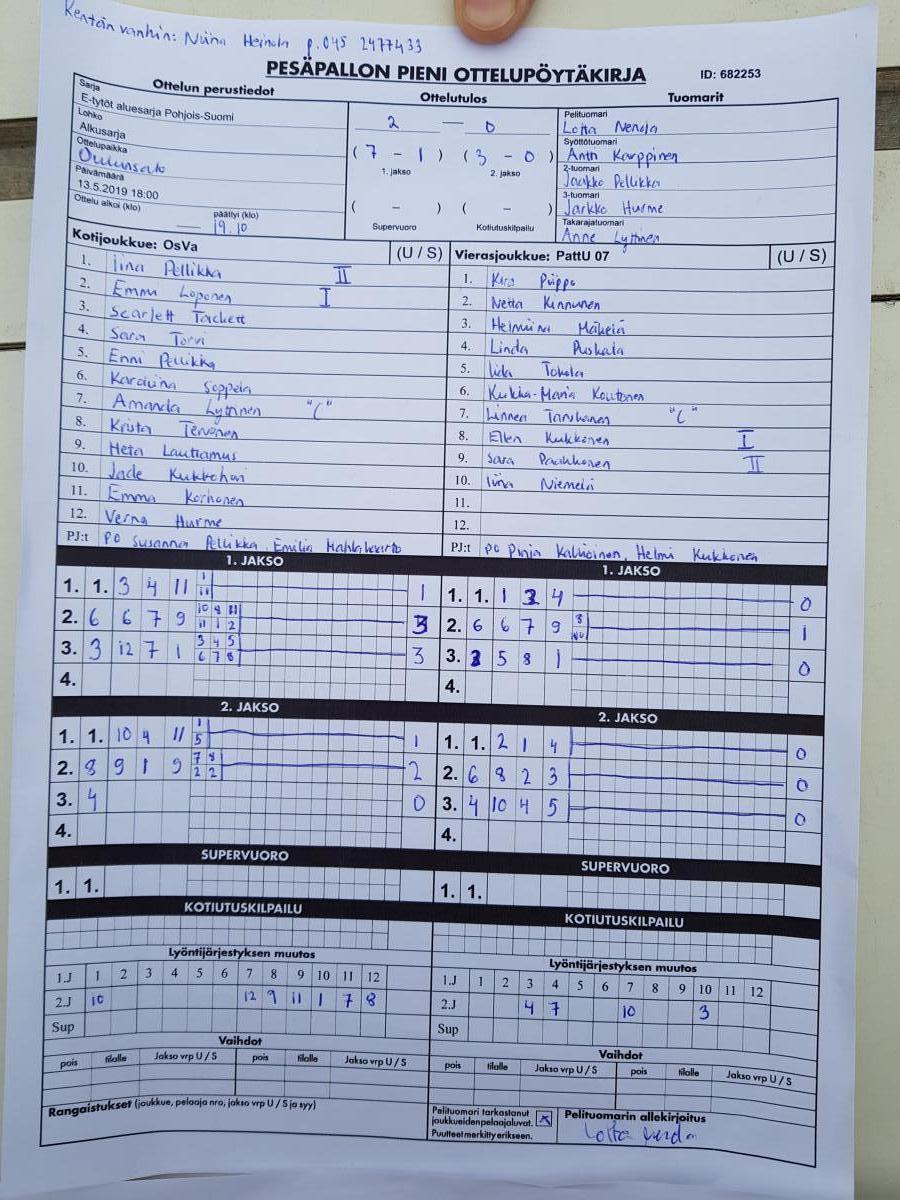 Kentän vanhin: Niina Heinola p.045 2477433
PESÄPALLON PIENI OTTELUPÖYTÄKIRJA
ID: 682253
Ottelun perustiedot
Sarja
E-tytöt aluesarja Pohjois-Suomi
Lohko
Alkusarja
Ottelupaikka
Oulunsalo
Päivämäärä
13.5.2019 18:00
Ottelu alkoi (klo) päättyi (klo)
— 19.10
Ottelutulos
2 — 0
(7 - 1) (3 - 0)
1. jakso 2. jakso
( - ) ( - )
Supervuoro Kotiutuskilpailu
Tuomarit
Pelituomari
Lotta Nerda
Syöttötuomari
Antti Karppinen
2-tuomari
Jaakko Pellikka
3-tuomari
Jarkko Hurme
Takarajatuomari
Anne Lyttinen
Kotijoukkue: OsVa (U / S)
1. Iina Pellikka II
2. Emma Loponen I
3. Scarlett Tackett
4. Sara Torvi
5. Enni Pellikka
6. Karoliina Soppela
7. Amanda Lyttinen "C"
8. Krista Tervonen
9. Heta Lauttamus
10. Jade
11. Emma Korhonen
12. Verna Hurme
PJ:t PO Susanna Pellikka, Emilia
Vierasjoukkue: PattU 07 (U / S)
1. Kira Piippo
2. Netta Kinnunen
3. Helmiina Mäkelä
4. Linda Puskala
5. Iida Tokola
6. Kukka-Maria Koutonen
7. Linnea Taruhanen "C"
8. Ellen Kukkonen I
9. Sara Paakkonen II
10. Iina Niemelä
11.
12.
PJ:t PO Pinja Kallioinen, Helmi Kukkonen
1. JAKSO
1. 1. 3 4 11 1 11 1
2. 6 6 7 9 10 9 11 11 1 2 3
3. 3 12 7 1 3 4 5 6 7 8 3
4.
1. JAKSO
1. 1. 1 3 4 0
2. 6 6 7 9 8 10 1
3. 3 5 8 1 0
4.
2. JAKSO
1. 1. 10 4 11 1 5 1
2. 8 9 1 9 7 8 2 2 2
3. 4 0
4.
2. JAKSO
1. 1. 2 1 4 0
2. 6 8 2 3 0
3. 4 10 4 5 0
4.
SUPERVUORO
1. 1.
SUPERVUORO
1. 1.
KOTIUTUSKILPAILU
KOTIUTUSKILPAILU
Lyöntijärjestyksen muutos
1.J 1 2 3 4 5 6 7 8 9 10 11 12
2.J 10 12 9 11 1 7 8
Sup
Lyöntijärjestyksen muutos
1.J 1 2 3 4 5 6 7 8 9 10 11 12
2.J 4 7 10 3
Sup
Vaihdot
pois tilalle Jakso vrp U / S pois tilalle Jakso vrp U / S
Vaihdot
pois tilalle Jakso vrp U / S pois tilalle Jakso vrp U / S
Rangaistukset (joukkue, pelaaja nro, jakso vrp U / S ja syy)
Pelituomari tarkastanut
joukkueiden pelaajaluvat. X
Puutteet merkitty erikseen.
Pelituomarin allekirjoitus
Lotta Nerda